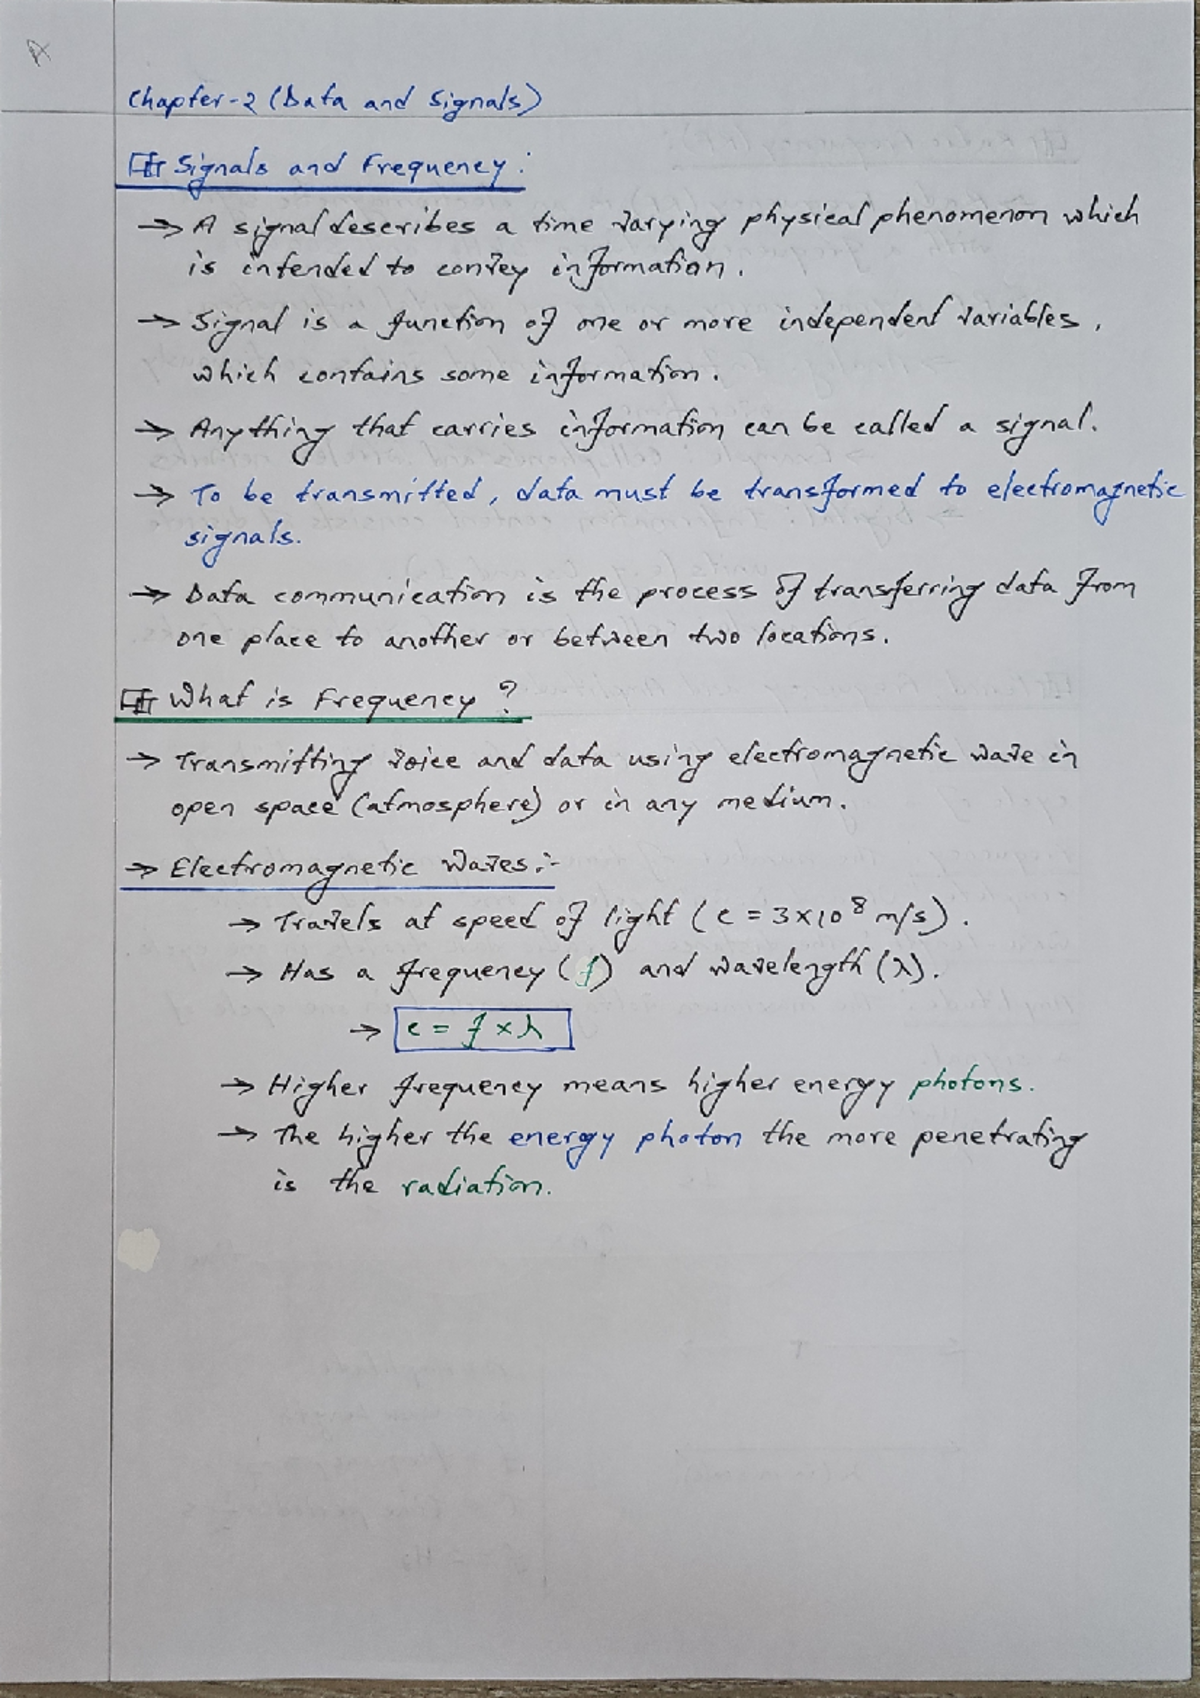 Chapter-2 (Data and Signals)
Signals and Frequency:
→ A signal describes a time varying physical phenomenon which
is intended to convey information.
→ Signal is a function of one or more independent variables,
which contains some information.
→ Anything that carries information can be called a signal.
→ To be transmitted, data must be transformed to electromagnetic
signals.
→ Data communication is the process of transferring data from
one place to another or between two locations.
What is Frequency?
→ Transmitting voice and data using electromagnetic wave in
open space (atmosphere) or in any medium.
→ Electromagnetic Waves:-
→ Travels at speed of light (c = 3×10⁸ m/s).
→ Has a frequency (f) and wavelength (λ).
→ c = f × λ
→ Higher frequency means higher energy photons.
→ The higher the energy photon the more penetrating
is the radiation.